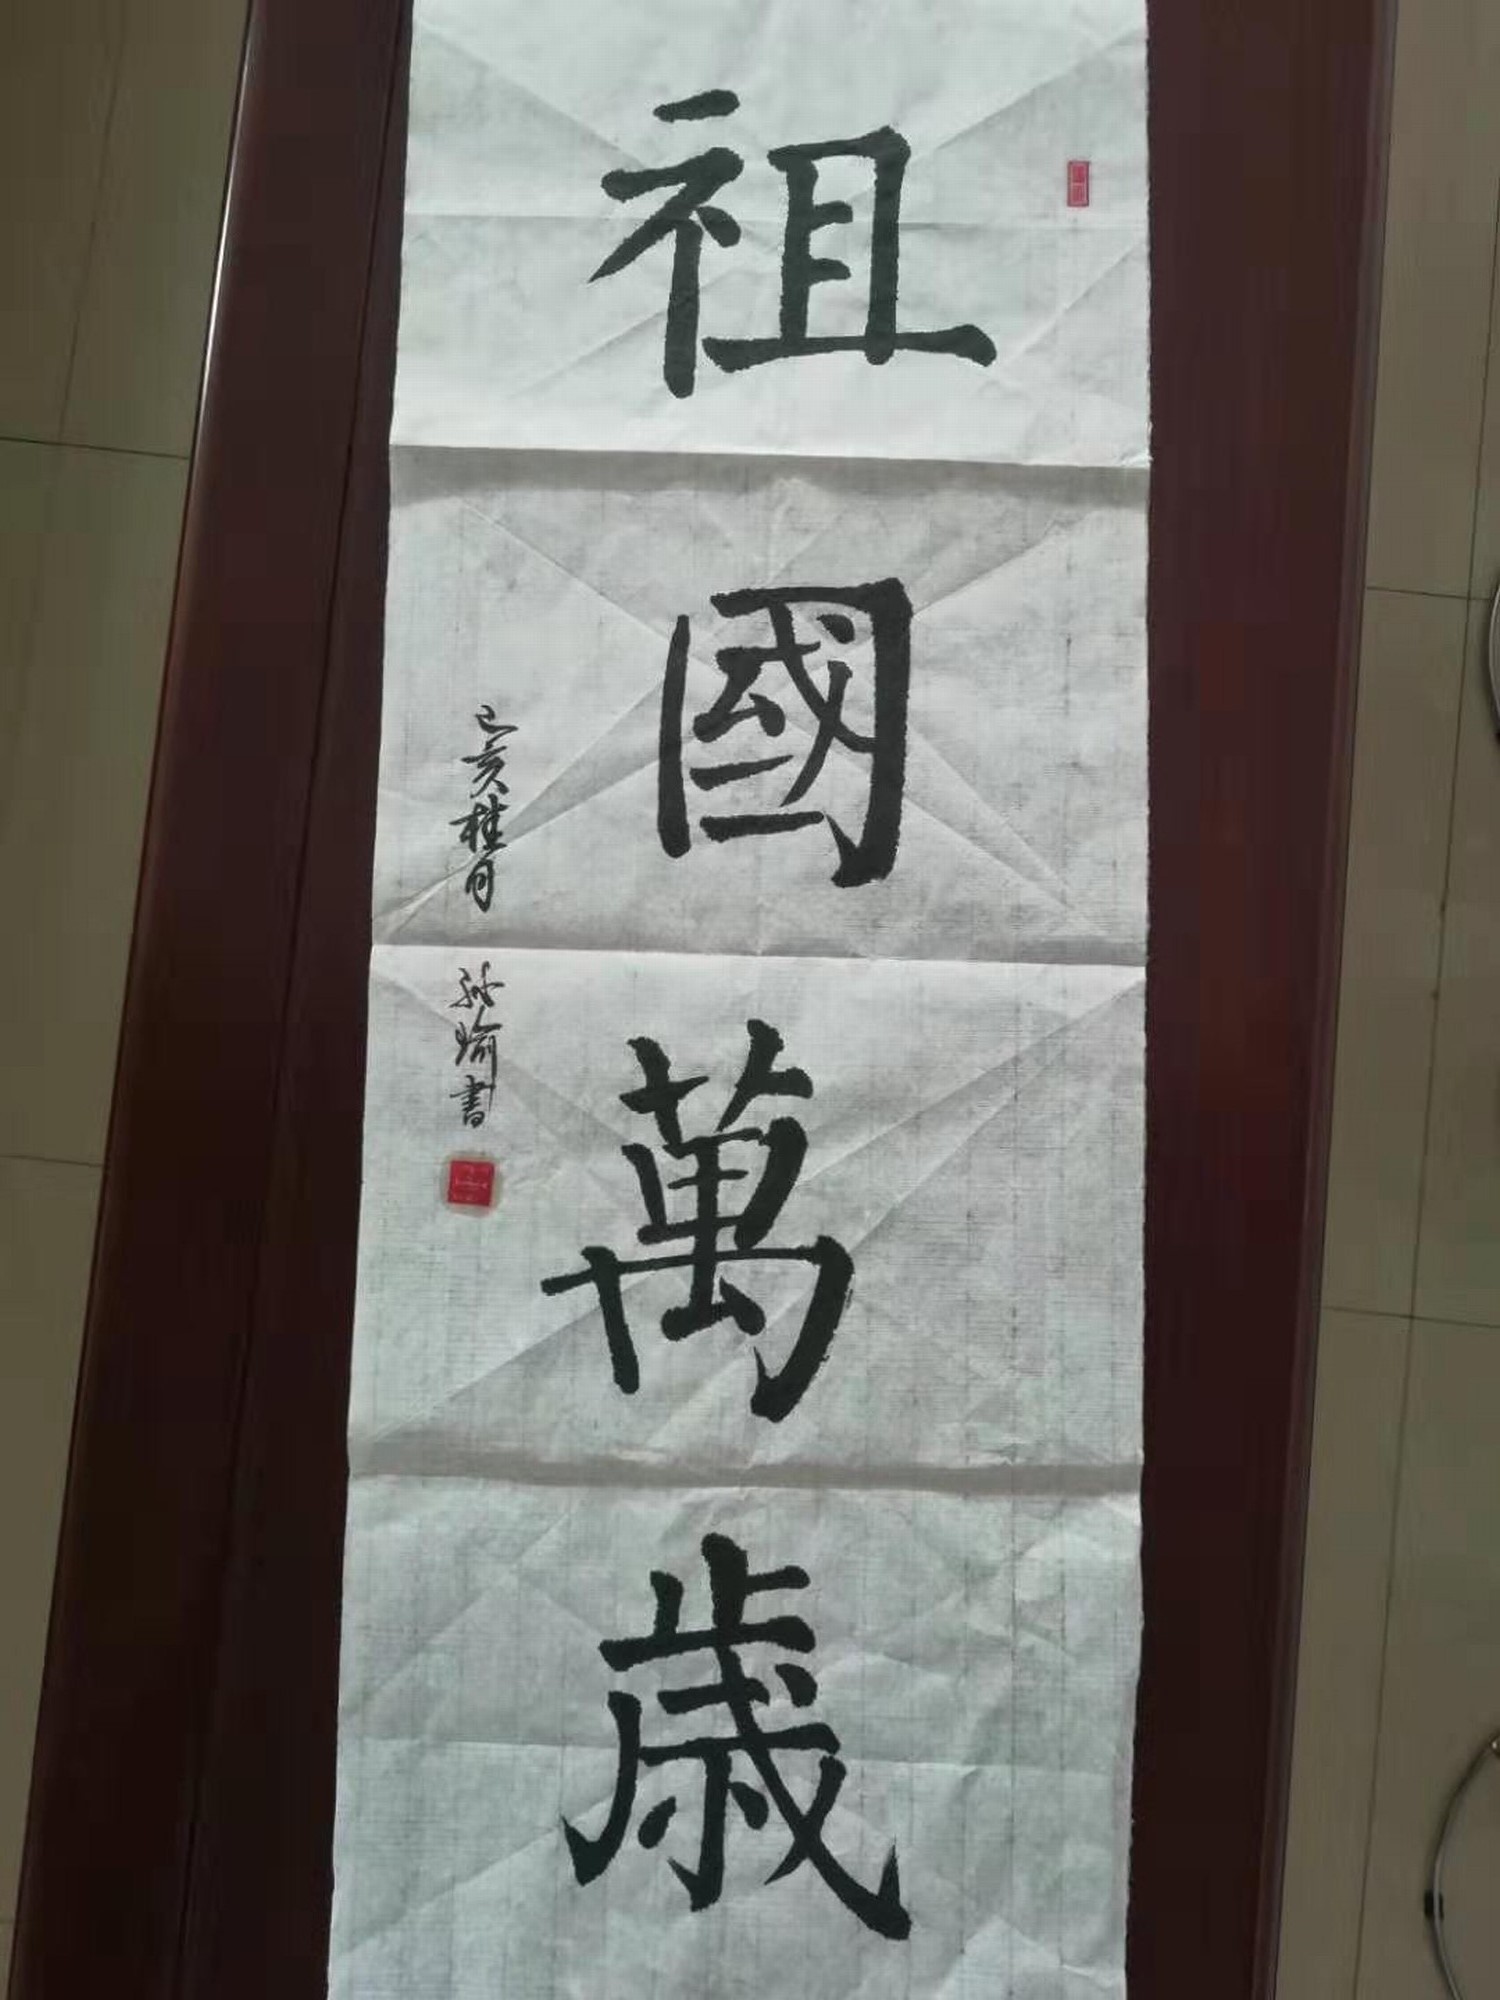 祖國萬歲
己亥桂月
孙瑜書